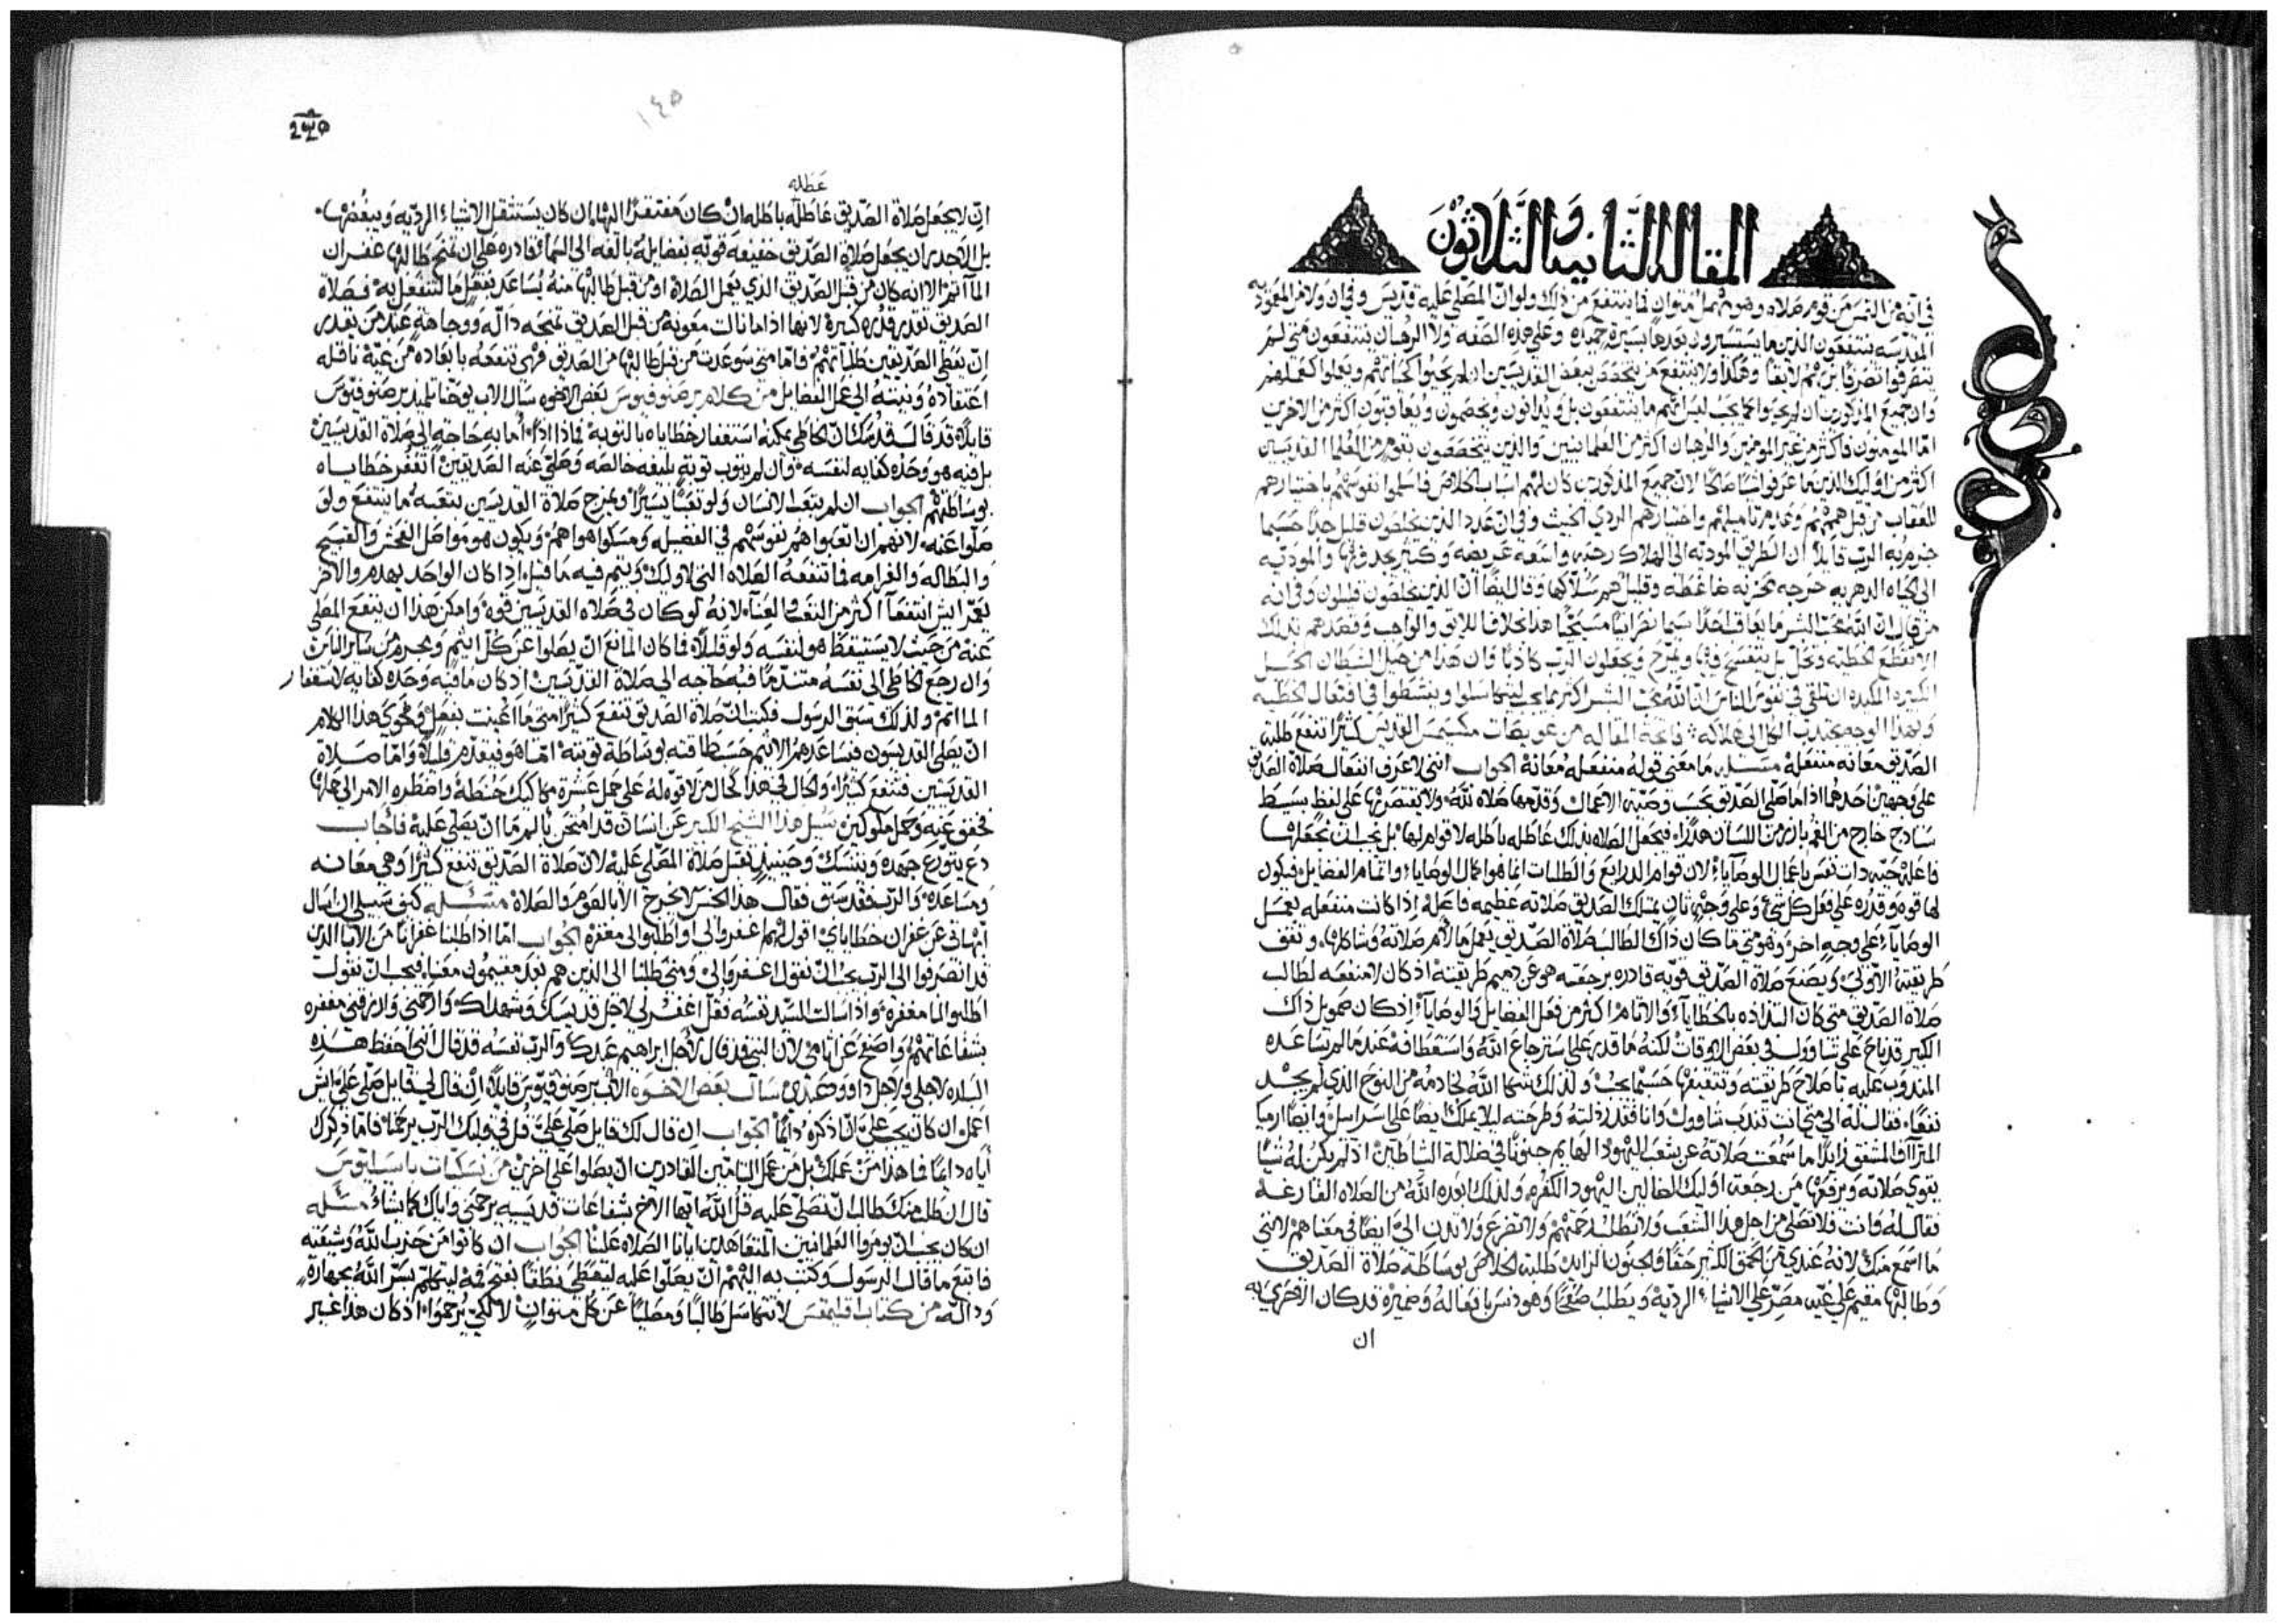 المقالة الثانية والثلاثون
في انه من التمس من قوم صلاه وهو مهمل متوان فما ينتفع من ذلك ولو ان المصلي عليه قديس وفي ان ولا من المعموديه
المقدسه ينتفعون الذين ما يستسيرون بعدها بسيرة حميده وعلى هذه الصفه ولا الرهبان ينتفعون متى لم
يتصرفوا تصرفا برهبنتهم لايقا وهكذا ولا ينتفع من
وان جميع المذكورين ان لم يحيوا كما يجب ليس انهم ما ينتفعون بل ويدانون ويخصمون ويعاقبون اكثر من الاخرين
اما المومنون فاكثر من غير المومنين والرهبان اكثر من العلمانيين والذين يتخصصون بقوم من المعلما القديسين
اكثر من اوليك الذين ما عرفوا شيا هكذا لان جميع المذكورين كان لهم اسباب الخلاص فاسلموا نفوسهم باختيارهم
للعقاب من قبل همهم وعدم تاميلهم واختيارهم الردي الخبيث وفي ان عدد الذين يخلصون قليل جدا حسبما
جزم به الرب قايلا ان الطريق الموديه الى الهلاك رحبه واسعه عريضه وكثير يجد فيها والموديه
الى الحياه الدهريه حرجه محزنه ضاغطه وقليل هم سلاكها وقال ايضا ان الذين يخلصون قليلون وفي انه
من قال ان الله محب البشر ما يعاقب احدا سيما نصرانيا مسيحيا هذا خلافا للايق والواجب وقصدهم بذلك
الا تقطع الخطيه وتحل بل يتفسح فيها وتمزح ويجعلون الرب كاذبا وان هذا من حيل الشيطان الخبيث
الكبيره المكيده ان تلقي في نفوس الناس ان الله محب البشر اكثر مما يجب ليتكاسلوا وينشطوا في افتعال الخطيه
وبهذا الوجه يجتذب الكل الى هلاكه فاتحة المقاله من عويصات مكسيمس القديس كثيرا تنفع طلبة
الصديق معانه منفعله مسله ما معنى قوله منفعله معانه الجواب انني لاعرف انفعال صلاة الصديق
على وجهين احدهما اذا ما صلى الصديق بحسب وصية الاعمال وقدمها صلاه لله ولا يقتصر بها على لفظ بسيط
ساذج خارج من الفم بازا من اللسان هذرا فيجعل الصلاه بذلك عاطله باطله لا قوام لها بل يجب ان يجعلها
فاعله حيه ذات نفس باعمال الوصايا لان قوام الذرايع والطلبات انما هو اكمال الوصايا واتمام الفضايل فيكون
لها قوه وقدره على فعل كل شي وعلى وجه ثان يمتلك الصديق صلاته عظيمه فاعله اذا كانت منفعله بعمل
الوصايا على وجه اخر وهو متى ما كان ذاك الطالب صلاة الصديق يعمل ما لام صلاته وشاكلها وتقف
طريقته الاولى ويصنع صلاة الصديق قويه قادره برجعته هو عن ذميم طريقته اذ كان لا منفعه لطالب
صلاة الصديق متى كان التذاذه بالخطايا والاثام اكثر من فعل الفضايل والوصايا اذ كان صمويل ذاك
الكبير قد ناح على شاوول في بعض الاوقات لكنه ما قدر على استرجاع الله واستعطافه عند ما لم تساعده
المندوب عليه باصلاح طريقته وتثقيفها حسبما يجب ولذلك نهى الله لخادمه من النوح الذي لم يجد
نفعا فقال له الى متى انت تندب شاوول وانا فقد رذلته وطرحته ليلا يملك ايضا على اسراييل وايضا ارميا
المتراأف المشفق زايدا ما سمعت صلاته عن شعب اليهود الهايم جنونا في ضلالة الشياطين اذ لم يكن له شيا
يقوي صلاته ويرفعها من رجعة اوليك الضالين اليهود الكفره ولذلك يوده الله من الصلاه الفارغه
فقال له وانت فلا تصلي من اجل هذا الشعب ولا تطلب رحمتهم ولا تتضرع ولا تدن الي ايضا في معناهم لانني
ما اسمع منك لانه عندي من الحمق الكثير حقا والجنون الزايد طلبة الخلاص بوساطة صلاة الصديق
وطالبها مقيم على غيه مصر على الاشيا الرديه ويطلب صفحا وهو دنس بافعاله وضميره قد كان الاحرى به
ان
245
١٤٥
عطله
ان لا يجعل صلاة الصديق عاطله باطله ان كان مفتقرا اليها وان كان يستثقل الاشيا الرديه ويبغضها
بل الاجدر ان يجعل صلاة الصديق خفيفه قويه بفضايله بالغه الى السما قادره على ان تمنح طالبها غفران
المااثم الا انه كان من قبل الصديق الذي يعمل الصلاة او من قبل طالبها منه يساعد بفعل ما لتنفعل به فصلاة
الصديق تقدر قدره كبيرة لانها اذا ما نالت معونه من قبل الصديق تمنحه دالة ووجاهة عند من يقدر
ان يعطي الصديقين طلباتهم فاما متى سوعدت من قبل طالبها من الصديق فهي تنفعه بابعاده من غيه ناقله
اعتقاده ونيته الى عمل الفضايل من كلام برصنوفيوس بعض الاخوه سال الاب يوحنا تلميذ برصنوفيوس
قايلا قد قال قديسك ان الخاطي يمكنه استغفار خطاياه بالتوبه فماذا اذا اما به حاجة الى صلاة القديسين
بل فيه هو وحده كفايه لنفسه وان لم يتوب توبة بليغه خالصه وصلي عنه الصديقين اتغفر خطاياه
بوساطتهم الجواب ان لم يتعب الانسان ولو تعبا يسيرا ويمزج صلاة القديسين بتعبه ما ينتفع ولو
صلوا عنه لانهم ان اتعبوا هم نفوسهم في الفضيله ومسكوا هواهم ويكون هو مواصل الفحش والقبيح
والبطاله والغرامه فما تنفعه الصلاه التي لاوليك ويتم فيه ما قيل اذا كان الواحد يهدم والاخر
يعمر ايش انتفعا اكثر من التعب والعناء لانه لو كان في صلاه القديسين قوه وامكن هذا ان ينفع المصلي
عنه من حيث لا يستيقظ هو لنفسه ولو قليلا فما كان المانع ان يصلوا عن كل اثيم ومجرم من ساير الناس
وان رجع الخاطي الى نفسه متندما فبه حاجه الى صلاة القديسين اذ كان ما فيه وحده كفايه لاستغفار
المااثم ولذلك سبق الرسول فكتب ان صلاة الصديق تنفع كثيرا متى ما اعينت بفعل وفحوى هذا الكلام
ان يصلي القديسون فيساعدهم الاثيم حسب طاقته بوساطة توبته اما هو فيقدم قليلا واما صلاة
القديسين فتنفع كثيرا والحال في هذا كحال من لا قوه له على حمل عشرة مكاكيك حنطة واضطره الامر الى حملها
فخفف عنه وحمل مكوكين سيل هذا الشيخ الكبير عن انسان قد امتحن بالم رام ان يصلي عليه فاجاب
دع يتورع جهده ويتنسك وحينيذ يقبل صلاة المصلي عليه لان صلاة الصديق تنفع كثيرا وهي معانه
ومساعده والرب فقد سبق فقال هذا الجنس لا يخرج الا بالصوم والصلاة مسله كيف سبيلي ان اسال
ابهاتي عن غفران خطاياي اقول لهم اغفروا لي او اطلبوا لي مغفره الجواب اما اذا طلبنا غفرانا من الابا الذين
قد انصرفوا الى الرب يجب ان نقول اغفروا لي ومتى طلبنا الى الذين هم بعد مقيمون معنا فيجب ان نقول
اطلبوا لنا مغفره واذا سالت السيد نفسه فقل اغفر لي لاجل قديسيك وشهدايك وارحمني وارزقني مغفره
بشفاعاتهم واصفح عن اثامي لان النبي قد قال لاجل ابراهيم عبدك والرب نفسه قد قال انني احفظ هذه
البلده لاجلي ولاجل داوود عبدي سال بعض الاخوه الكبير برصنوفيوس قايلا ان قال لي قايل صلي علي ايش
اعمل ان كان يجب علي ان اذكره دايما الجواب ان قال لك قايل صلي علي قل في قلبك الرب يرحمنا فاما ذكرك
اياه دايما فما هذا من عملك بل من عمل التامين القادرين ان يصلوا على اخرين من نسكيات باسيليوس
قال ان طلب منك طالب ان تصلي عليه قل الله ايها الاخ شفاعات قديسيه يرحمني واياك كما يشاء مسله
ان كان يجب ان يومروا العلمانيين المتعاهدين ايانا الصلاه علينا الجواب ان كانوا من حزب الله وشيعته
فاتبع ما قال الرسول وكتب به اليهم ان يصلوا عليه ليعطى نطقا بفتح فمه ليتكلم بسر الله بجهارة
ودالة من كتاب اقليمقس لا تتكاسل طالبا ومصليا عن كل متوان لا لكي يرحموا اذ كان هذا غير